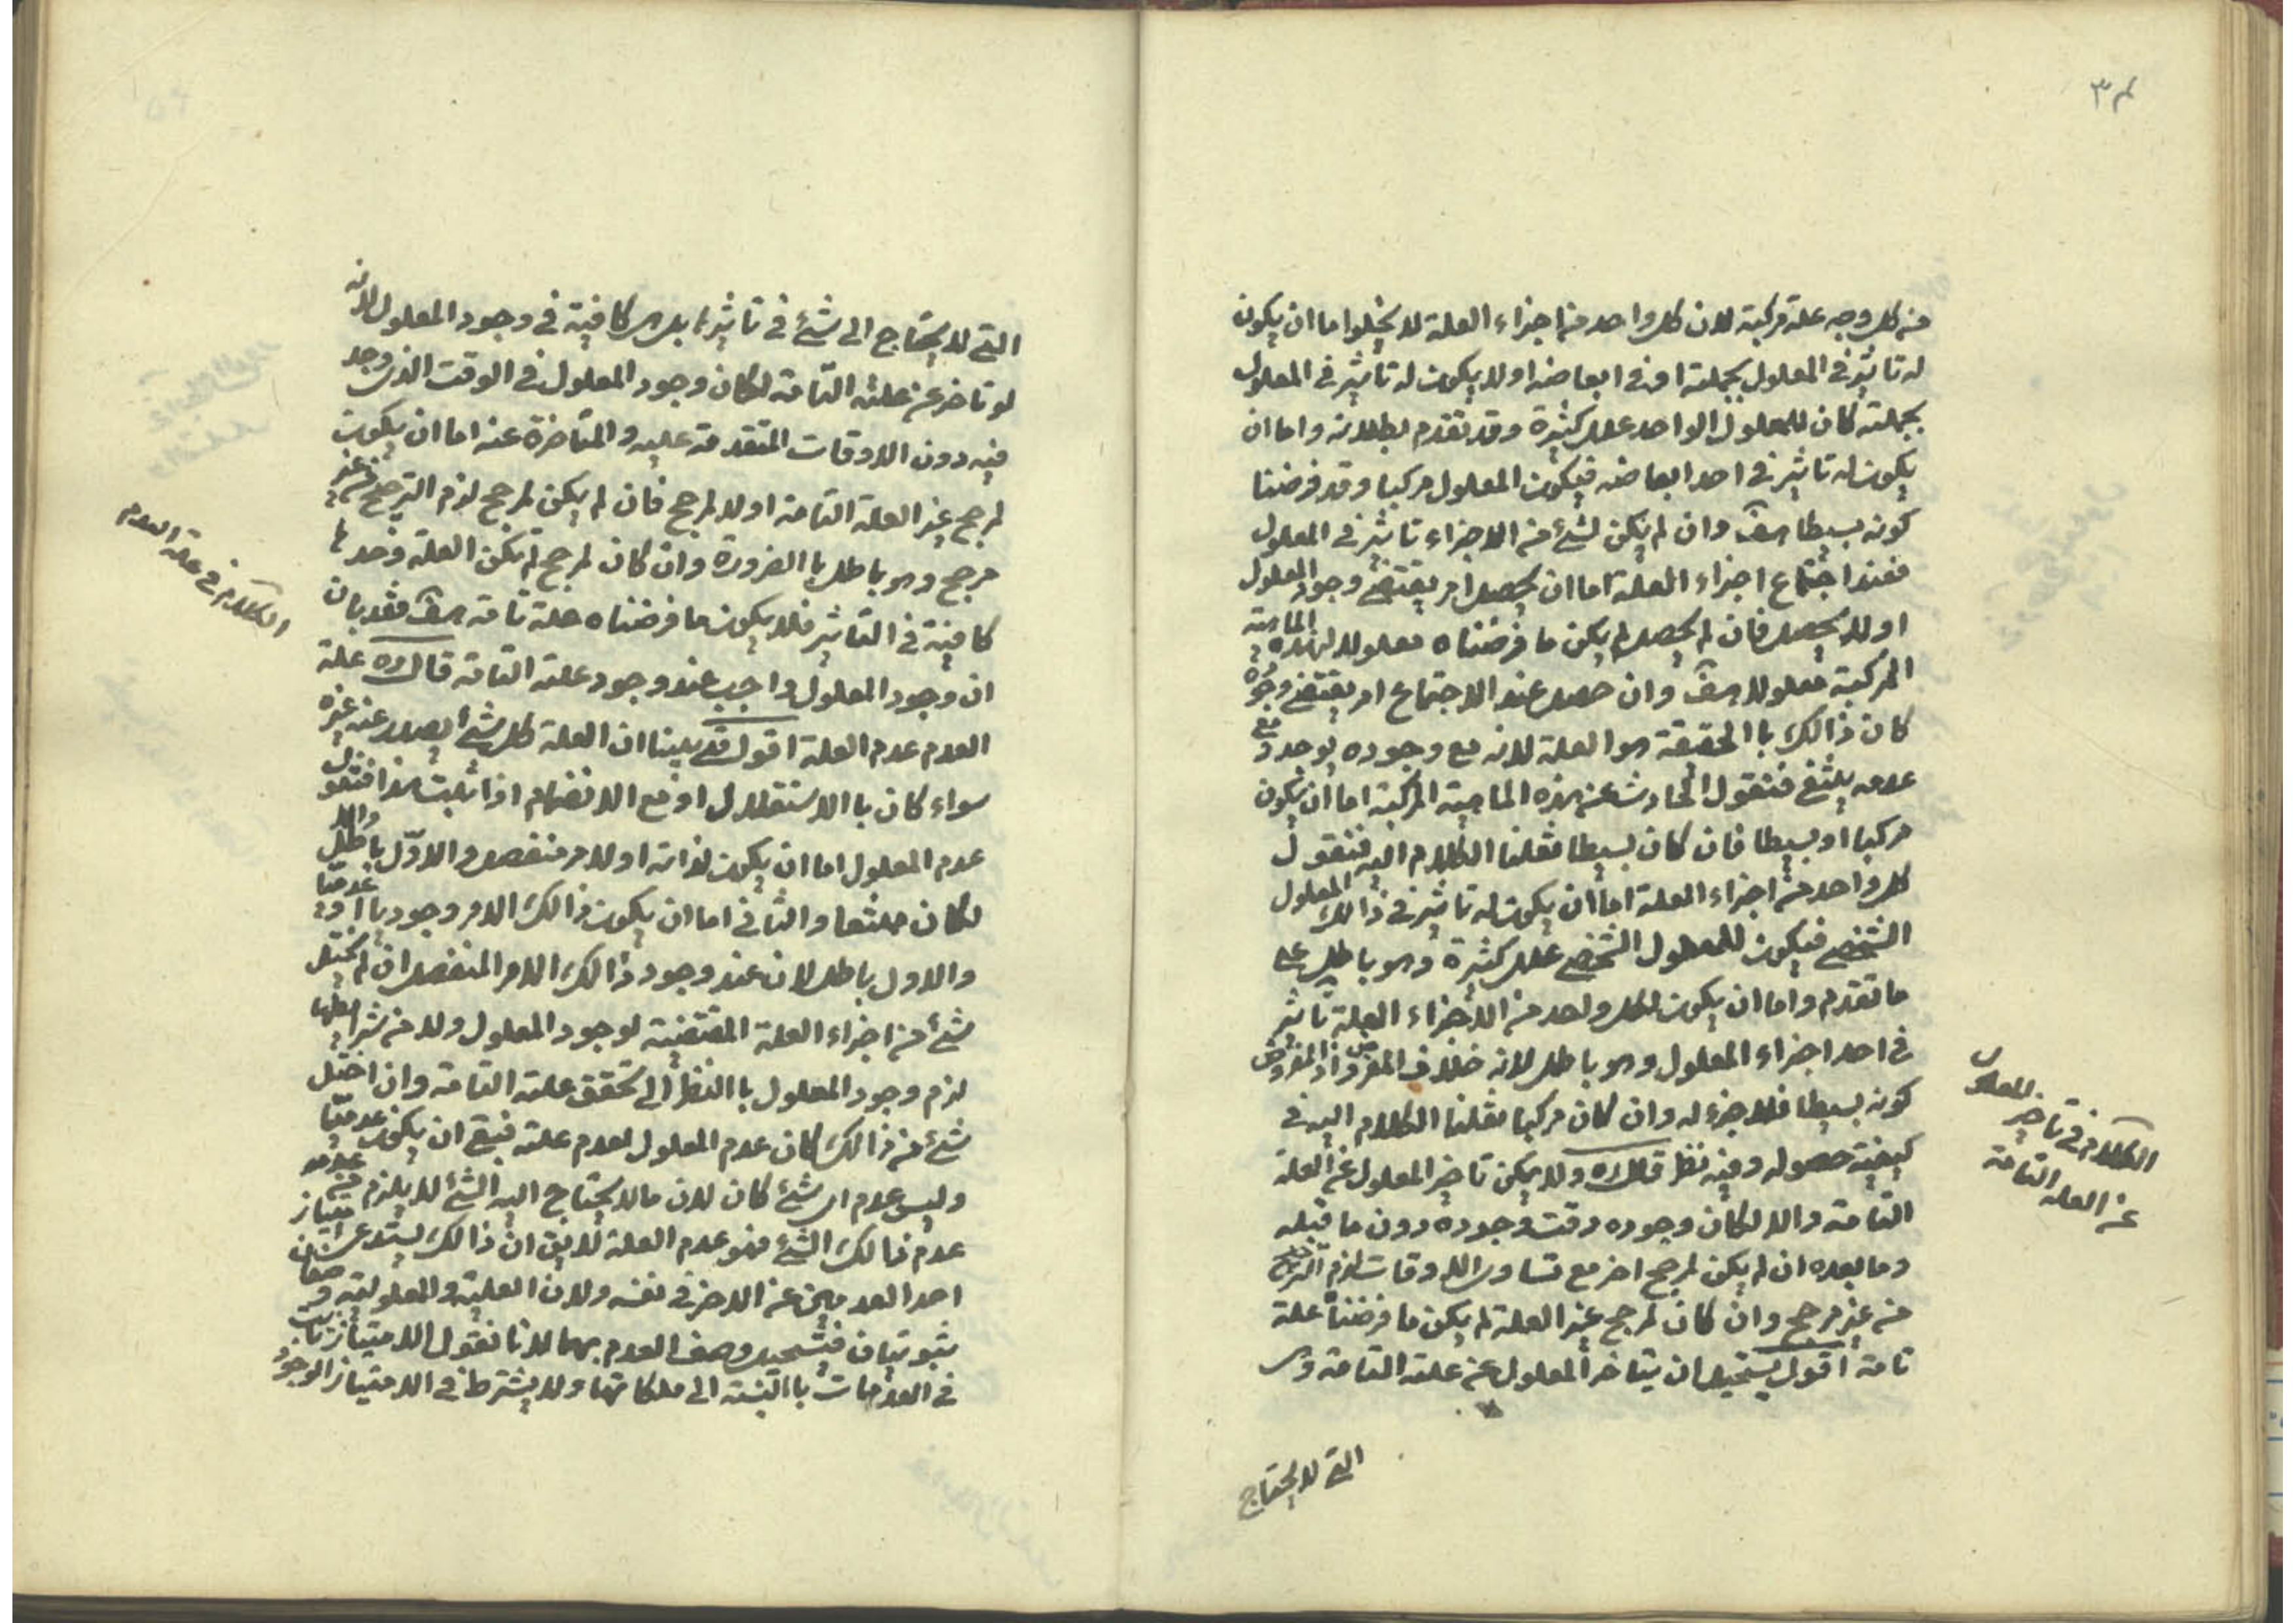 ٣٨
من كل وجه علة مركبة لان كل واحد من اجزاء العلة لا يخلوا اما ان يكون
له تاثير في المعلول بجملته او في ابعاضه او لا يكون له تاثير في المعلول
بجملته كان للمعلول الواحد علل كثيرة وقد تقدم بطلانه واما ان
يكون له تاثير في احد ابعاضه فيكون المعلول مركبا وقد فرضنا
كونه بسيطا هف وان لم يكن لشئ من الاجزاء تاثير في المعلول
فعند اجتماع اجزاء العلة اما ان يحصل امر يقتضي وجود المعلول
او لا يحصل فان لم يحصل لم يكن ما فرضناه معلولا لهذه الماهية
المركبة معلولا هف وان حصل عند الاجتماع امر يقتضي وجوده
كان ذالك باالحقيقة هو العلة لانه مع وجوده يوجد و مع
عدمه ينتفي فنقول الحادث عن هذه الماهية المركبة اما ان يكون
مركبا او بسيطا فان كان بسيطا نقلنا الكلام اليه فنقول
كل واحد من اجزاء العلة اما ان يكون له تاثير في ذالك المعلول
الشخصي فيكون للمعلول الشخصي علل كثيرة وهو باطل على
ما تقدم واما ان يكون لكل واحد من الاجزاء العلة تاثير
في احد اجزاء المعلول وهو باطل لانه خلاف المفروض اذ المفروض
كونه بسيطا فلا جزء له وان كان مركبا نقلنا الكلام اليه في
كيفية حصوله وفيه نظر قال ره ولا يمكن تاخير المعلول عن العلة
التامة والا لكان وجوده وقت وجوده دون ما قبله
وما بعده ان لم يكن لمرجح اخر مع تساوى الاوقات لزم الترجيح
من غير مرجح وان كان لمرجح غير العلة لم يكن ما فرضناه علة
تامة اقول يستحيل ان يتاخر المعلول عن علته التامة وهى
التي لا يحتاج
الكلام في تاخير المعلول
عن العلة التامة
التي لا يحتاج الى شئ في تاثيرها بل هى كافية في وجود المعلول لانه
لو تاخر عن علته التامة لكان وجود المعلول في الوقت الذى وجد
فيه دون الاوقات المتقدمة عليه والمتاخرة عنه اما ان يكون
لمرجح غير العلة التامة او لا لمرجح فان لم يكن لمرجح لزم الترجيح من غير
مرجح وهو باطل باالضرورة وان كان لمرجح لم تكن العلة وحدها
كافية في التاثير فلا يكون ما فرضناه علة تامة هف فقد بان
ان وجود المعلول واجب عند وجود علته التامة قال ره علة
العدم عدم العلة اقول قد بينا ان العلة كل شئ يصدر عنه غيره
سواء كان باالاستقلال او مع الانضمام اذا ثبت هذا فنقول
عدم المعلول اما ان يكون لذاته او لامر منفصل والاول باطل والا
لكان ممتنعا والثاني اما ان يكون ذالك الامر وجوديا او عدميا
والاول باطل لان عند وجود ذالك الامر المنفصل ان لم يختل
شئ من اجزاء العلة المقتضية لوجود المعلول ولا من شرايطها
لزم وجود المعلول باالنظر الى تحقق علته التامة وان اختل
شئ من ذالك كان عدم المعلول لعدم علته فبقي ان يكون عدميا
وليس عدم اى شئ كان لان ما لا يحتاج اليه الشئ لا يلزم من عدمه
عدم ذالك الشئ فهو عدم العلة لا يق ان ذالك يستدعى امتياز
احد العدمين عن الاخر في نفسه ولان العلية والمعلولية وصفان
ثبوتيان فيستحيل وصف العدم بهما لانا نقول الامتياز ثابت
في العدمات باالنسبة الى ملكاتها ولا يشترط في الامتياز الوجود
الكلام في علة العدم